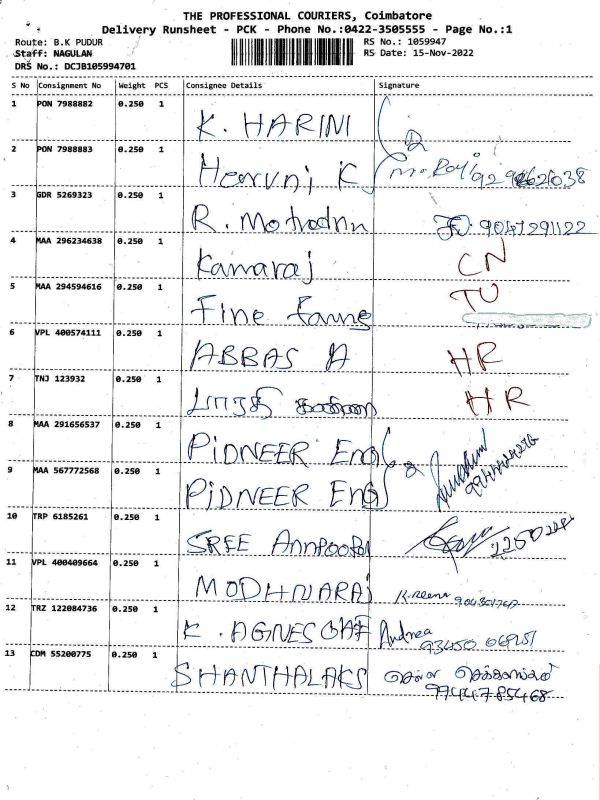 THE PROFESSIONAL COURIERS, Coimbatore
Delivery Runsheet - PCK - Phone No.:0422-3505555 - Page No.:1
Route: B.K PUDUR RS No.: 1059947
Staff: NAGULAN RS Date: 15-Nov-2022
DRS No.: DCJB105994701
S No Consignment No Weight PCS Consignee Details Signature
1 PON 7988882 0.250 1 K. HARINI
2 PON 7988883 0.250 1
3 GDR 5269323 0.250 1 R. 9047291122
4 MAA 296234638 0.250 1 Kamaraj CN
5 MAA 294594616 0.250 1 Fine TU
6 VPL 400574111 0.250 1 ABBAS A HR
7 TNJ 123932 0.250 1 பாரதி HR
8 MAA 291656537 0.250 1 PIONEER Eng
9 MAA 567772568 0.250 1 PIONEER Eng
10 TRP 6185261 0.250 1 SREE
11 VPL 400409664 0.250 1 K. Reena
12 TRZ 122084736 0.250 1 K. AGNES Andrea
13 CDM 55200775 0.250 1 SHANTHALAKS
9944785468